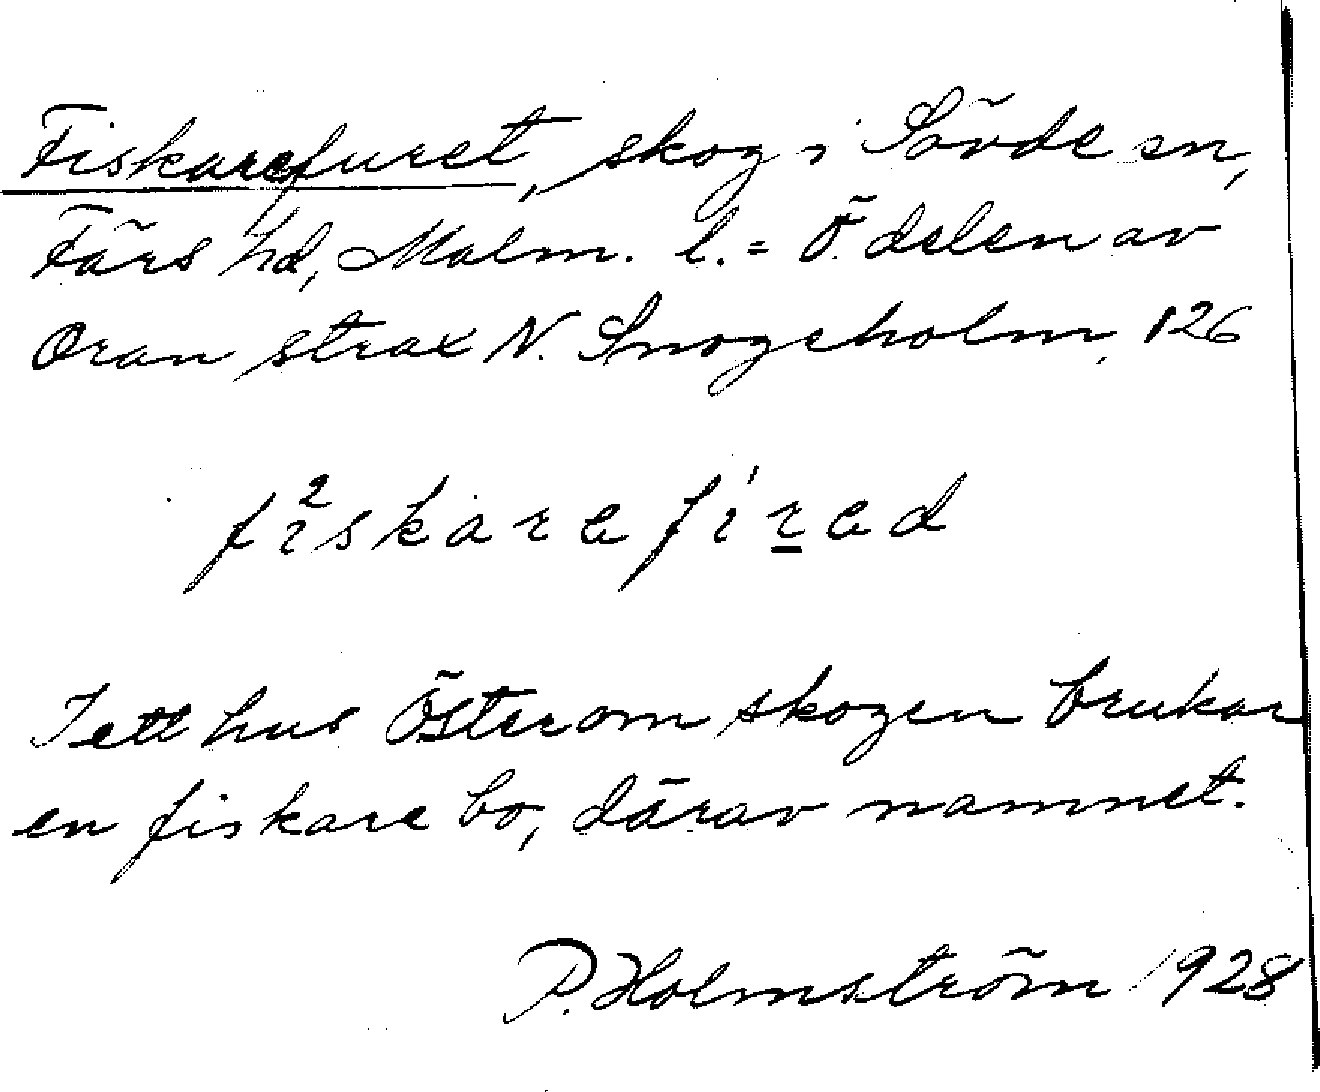 Fiskarefuret, skog i Sövde sn,
Färs hd, Malm. l. = Ö. delen av
Oran strax N. Snogeholm, 126
fi²skarafi'rad
I ett hus Öster om skogen brukar
en fiskare bo, därav namnet.
P. Holmström 1928